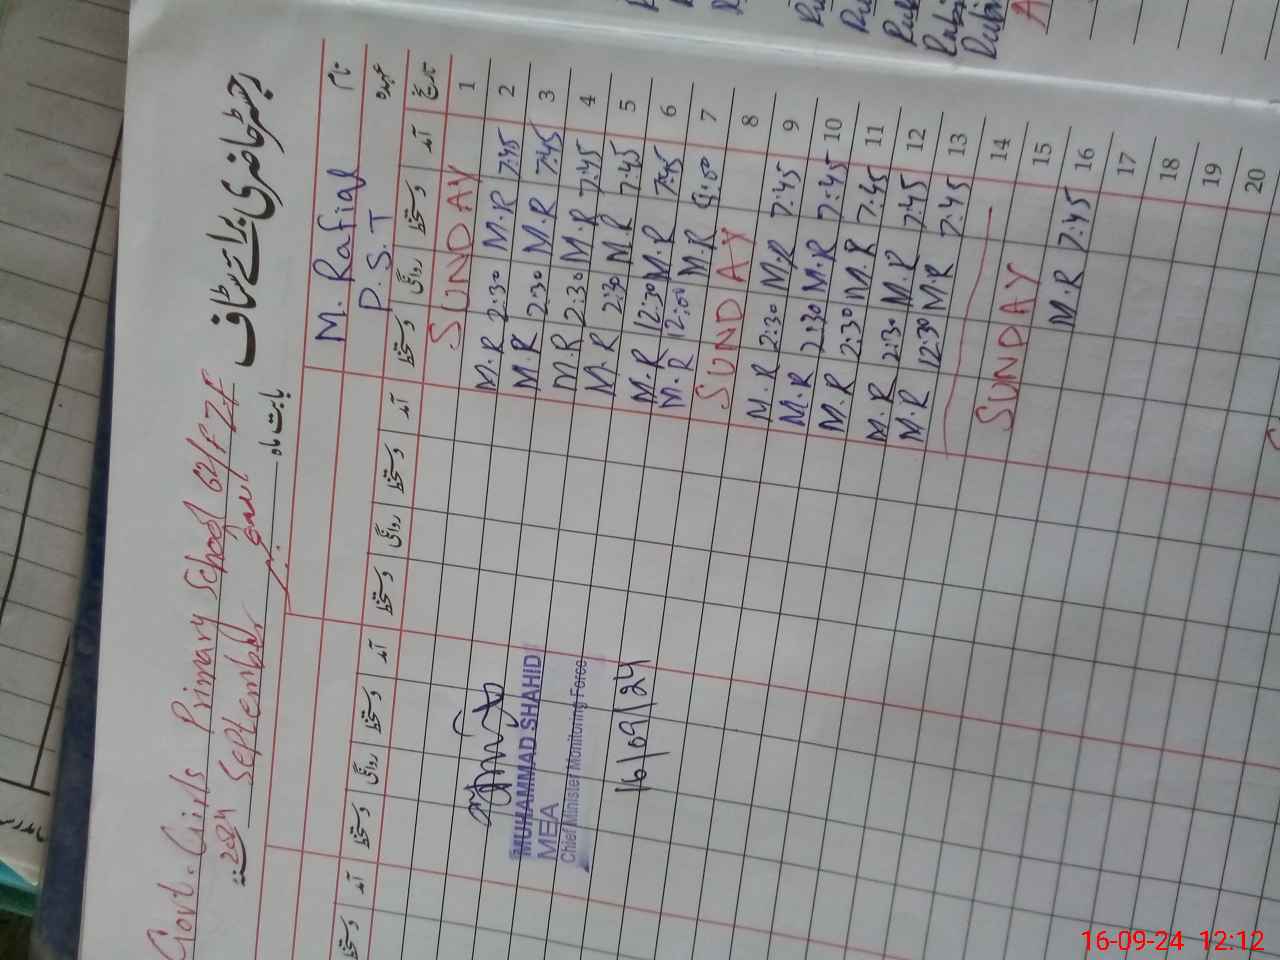 رجسٹر حاضری برائے سٹاف
Govt. Girls Primary School 62/FZF
بابت ماہ ستمبر September 2024
نام M. Rafial
عہدہ P.S.T
تاریخ آمد دستخط روانگی دستخط آمد دستخط روانگی دستخط آمد دستخط روانگی دستخط آمد دستخط
1 SUNDAY
2 7:45 M.R 2:30 M.R
3 7:45 M.R 2:30 M.R
4 7:45 M.R 2:30 M.R
5 7:45 M.R 2:30 M.R
6 7:45 M.R 12:30 M.R
7 8:00 M.R 12:00 M.R
8 SUNDAY
9 7:45 M.R 2:30 M.R
10 7:45 M.R 2:30 M.R
11 7:45 M.R 2:30 M.R
12 7:45 M.R 2:30 M.R
13 7:45 M.R 12:30 M.R
14
15 SUNDAY
16 7:45 M.R
17
18
19
20
MUHAMMAD SHAHID
MEA
Chief Minister Monitoring Force
16/09/24
16-09-24 12:12